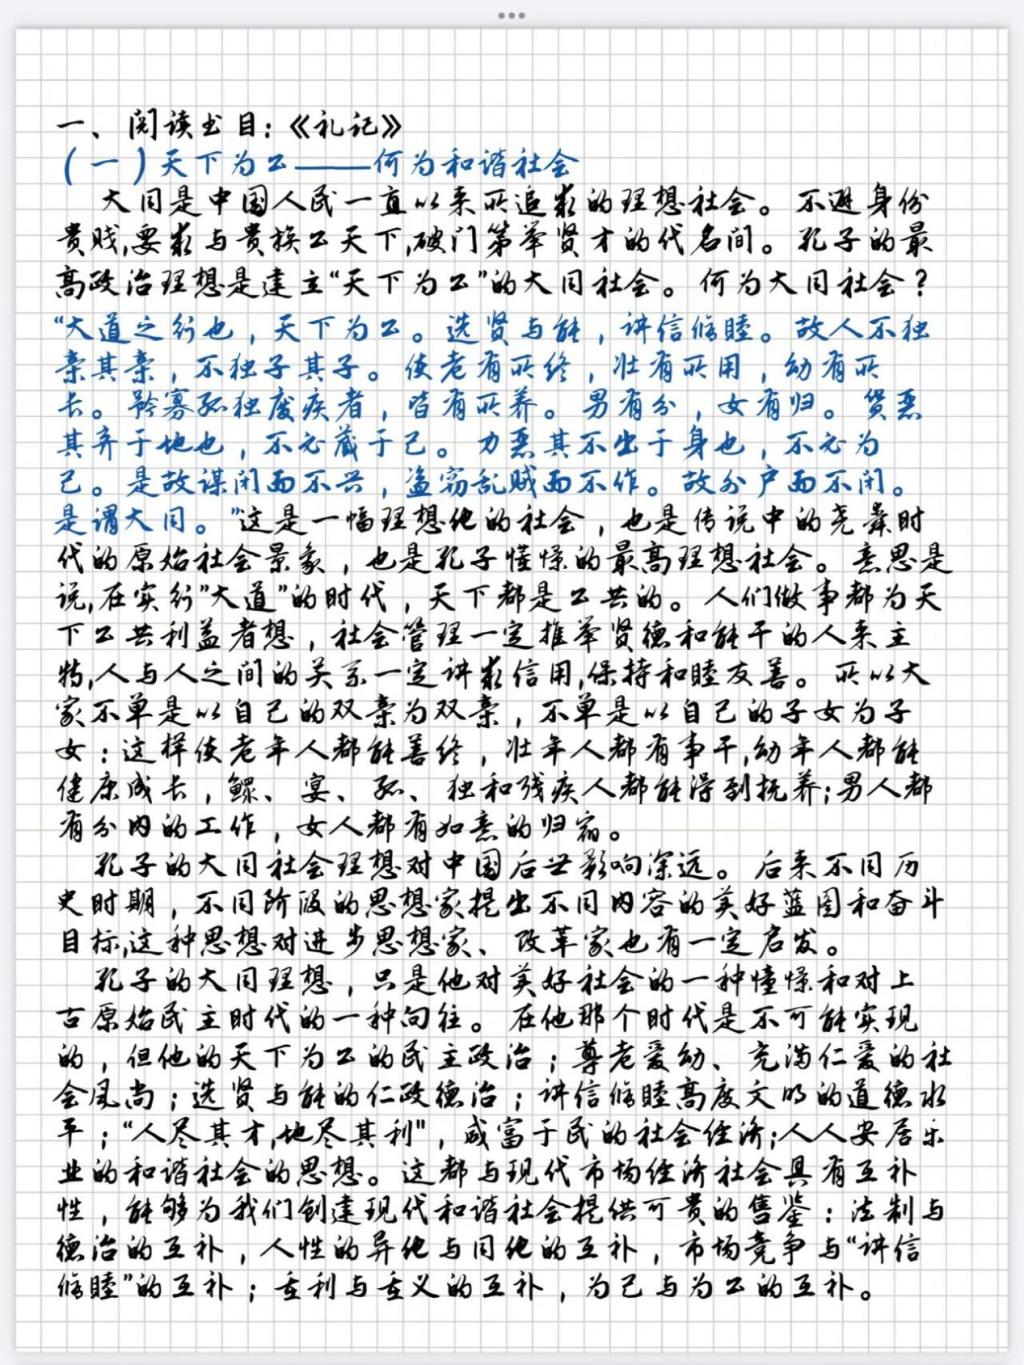 一、阅读书目:《礼记》
(一)天下为公——何为和谐社会
大同是中国人民一直以来所追求的理想社会。不避身份
贵贱,要求与贵族公天下,破门第举贤才的代名间。孔子的最
高政治理想是建立“天下为公”的大同社会。何为大同社会?
“大道之行也,天下为公。选贤与能,讲信修睦。故人不独
亲其亲,不独子其子。使老有所终,壮有所用,幼有所
长。矜寡孤独废疾者,皆有所养。男有分,女有归。货恶
其弃于地也,不必藏于己。力恶其不出于身也,不必为
己。是故谋闭而不兴,盗窃乱贼而不作。故外户而不闭。
是谓大同。”这是一幅理想化的社会,也是传说中的尧舜时
代的原始社会景象,也是孔子憧憬的最高理想社会。意思是
说,在实行”大道”的时代,天下都是公共的。人们做事都为天
下公共利益着想,社会管理一定推举贤德和能干的人来主
持,人与人之间的关系一定讲求信用,保持和睦友善。所以大
家不单是以自己的双亲为双亲,不单是以自己的子女为子
女:这样使老年人都能善终,壮年人都有事干,幼年人都能
健康成长,鳏、寡、孤、独和残疾人都能得到抚养;男人都
有分内的工作,女人都有如意的归宿。
孔子的大同社会理想对中国后世影响深远。后来不同历
史时期,不同阶级的思想家提出不同内容的美好蓝图和奋斗
目标,这种思想对进步思想家、改革家也有一定启发。
孔子的大同理想,只是他对美好社会的一种憧憬和对上
古原始民主时代的一种向往。在他那个时代是不可能实现
的,但他的天下为公的民主政治;尊老爱幼、充满仁爱的社
会风尚;选贤与能的仁政德治;讲信修睦高度文明的道德水
平;“人尽其才,地尽其利",咸富于民的社会经济;人人安居乐
业的和谐社会的思想。这都与现代市场经济社会具有互补
性,能够为我们创建现代和谐社会提供可贵的售鉴:法制与
德治的互补,人性的异化与同化的互补,市场竞争与“讲信
修睦”的互补;重利与重义的互补,为己与为公的互补。